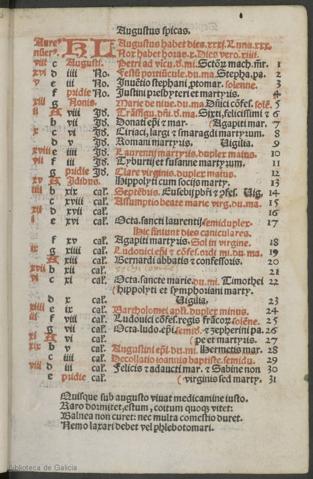 Augustus spicas.
Augustus habet dies.xxxi. Luna.xxx.
Nox habet horas.x. Dies vero.xiiii.
viii c Augusti. Petri ad vicũ.d.mi. Sctõꝝ mach.mr. 1
xvi d iiii No. Stepha.pa. 2
v e iii No. Inuẽtio stephani ꝓtomar. solenne. 3
f pridie No. Justini presbyteri et martyris 4
g Nonis. Marie de niue.du.ma. 5
A viii Id. Sixti,felicissimi 6
b vii Id. Donati epi et mar. Agapiti mar. 7
c vi Id. Ciriaci, largi et smaragdi martyrum. 8
d v Id. Romani martyris. Uigilia. 9
e iiii Id. Laurentij martyris. duplex maius 10
f iii Id. Tyburtij et susanne martyrum. 11
g pridie Id. Clare virginis. duplex maius. 12
A Idibus. Hippolyti cum socijs marty. 13
b xix cal. Eusebij Uig. 14
c xviii cal. Assumptio beate marie virg.du.ma. 15
d xvii cal. 16
e xvi cal. Octa.sancti laurentij semiduplex. 17
Hic finiunt dies caniculares.
f xv cal. Agapiti martyris. Sol in virgine. 18
g xiiii cal. Ludouici du.ma. 19
A xiii cal. Bernardi abbatis et confessoris. 20
b xii cal. 21
c xi cal. Octa.sancte marie.du.mi. Timothei 22
hippolyti et symphoriani marty.
d x cal. Uigilia. 23
e ix cal. Bartholomei apli. duplex minus. 24
f viii cal. Ludouici solẽne. 25
g vii cal. Octa.ludo. zepherini pa. 26
A vi cal. 27
b v cal. Augustini Hermetis mar. 28
c iiii cal. Decollatio ioannis baptiste.semidu. 29
d iii cal. Felicis et adaucti mar. et Sabine non 30
e pridie cal. virginis sed marty. 31
Quisque sub augusto viuat medicamine iusto.
Raro dormitet,estum, coitum quoque vitet:
Balnea non curet: nec multa comestio duret.
Nemo laxari debet vel phlebotomari.
Biblioteca de Galicia